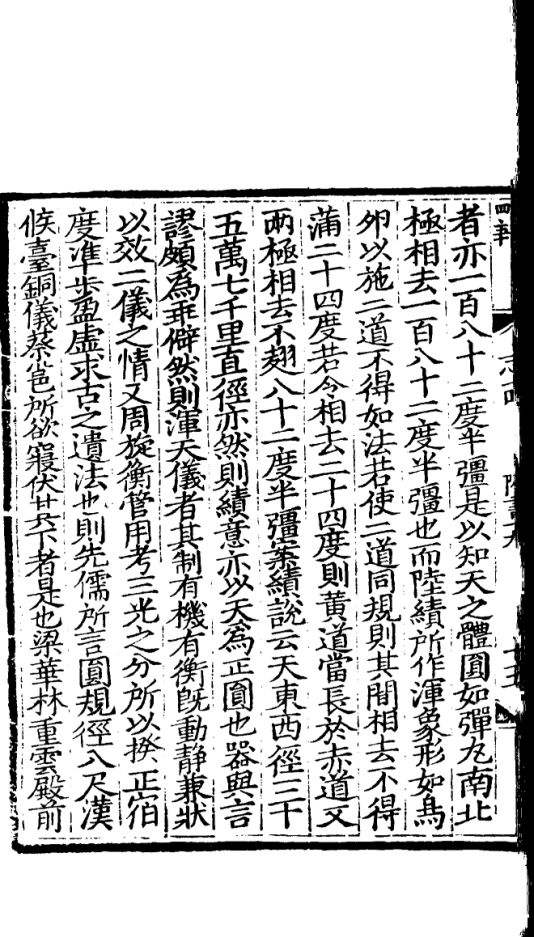 者亦一百八十二度半彊是以知天之體圓如彈丸南北
極相去一百八十二度半彊也而陸績所作渾象形如鳥
夘以施二道不得如法若使二道同規則其間相去不得
滿二十四度若令相去二十四度則黃道當長於赤道又
兩極相去不翅八十二度半彊案績說云天東西徑三十
五萬七千里直徑亦然則績意亦以天為正圓也器與言
謬頗為乖僻然則渾天儀者其制有機有衡旣動靜兼狀
以效二儀之情又周旋衡管用考三光之分所以揆正宿
度準步盈虛求古之遺法也則先儒所言圓規徑八尺漢
候臺銅儀蔡邕所欲寢伏其下者是也梁華林重雲殿前